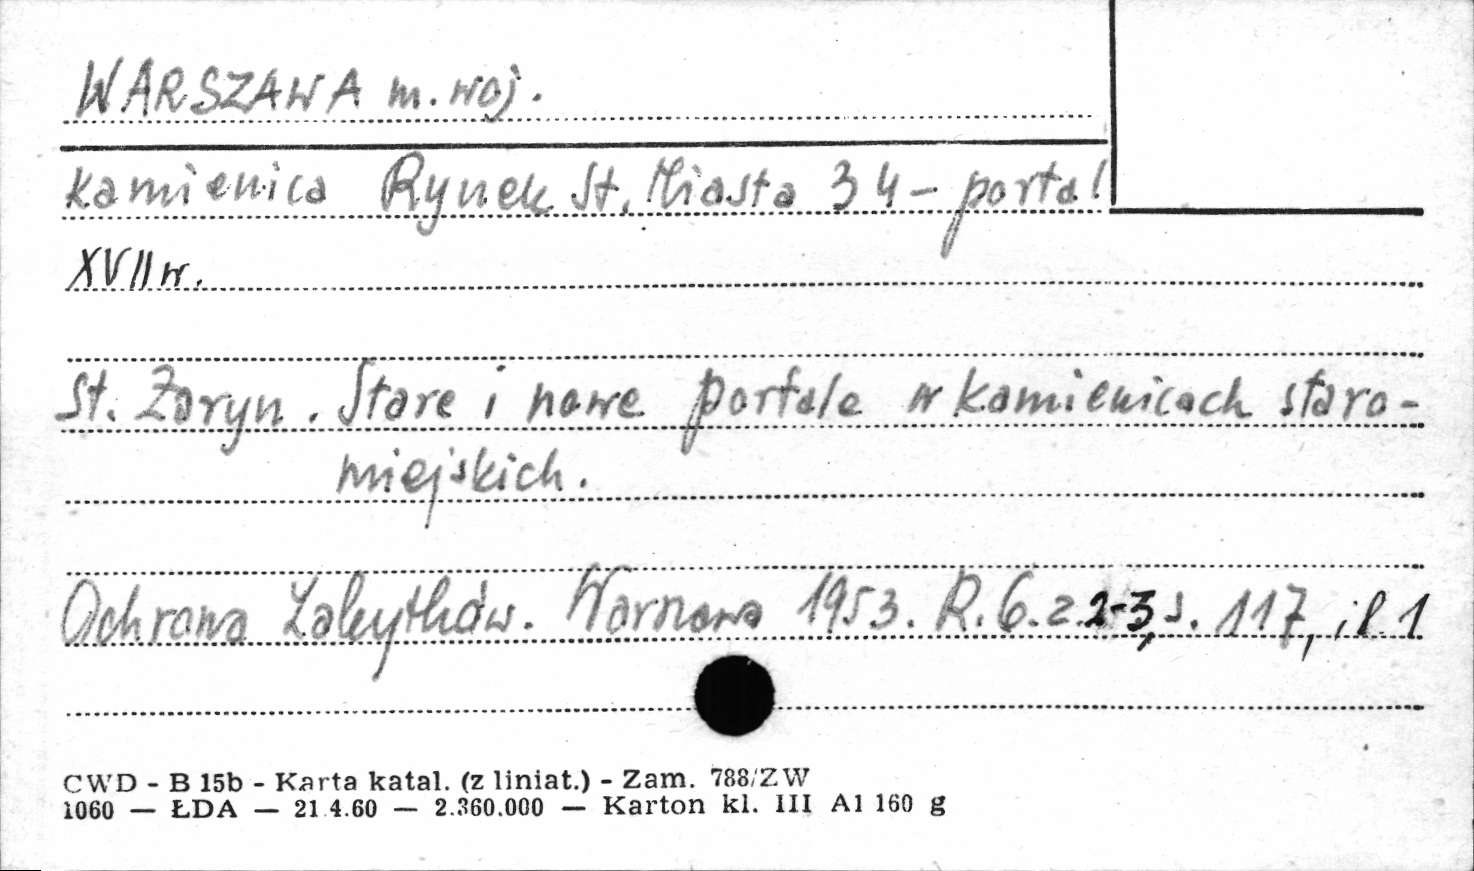 WARSZAWA m. woj.
kamienica Rynek St. Miasta 34 - portal
XVII w.
St. Żaryn. Stare i nowe portale w kamienicach staro-
miejskich.
Ochrona Zabytków. Warszawa 1953. R. 6. z. 2-3, s. 117, il. 1
CWD - B 15b - Karta katal. (z liniat.) - Zam. 788/ZW
1060 — ŁDA — 21.4.60 — 2.360.000 — Karton kl. III A1 160 g